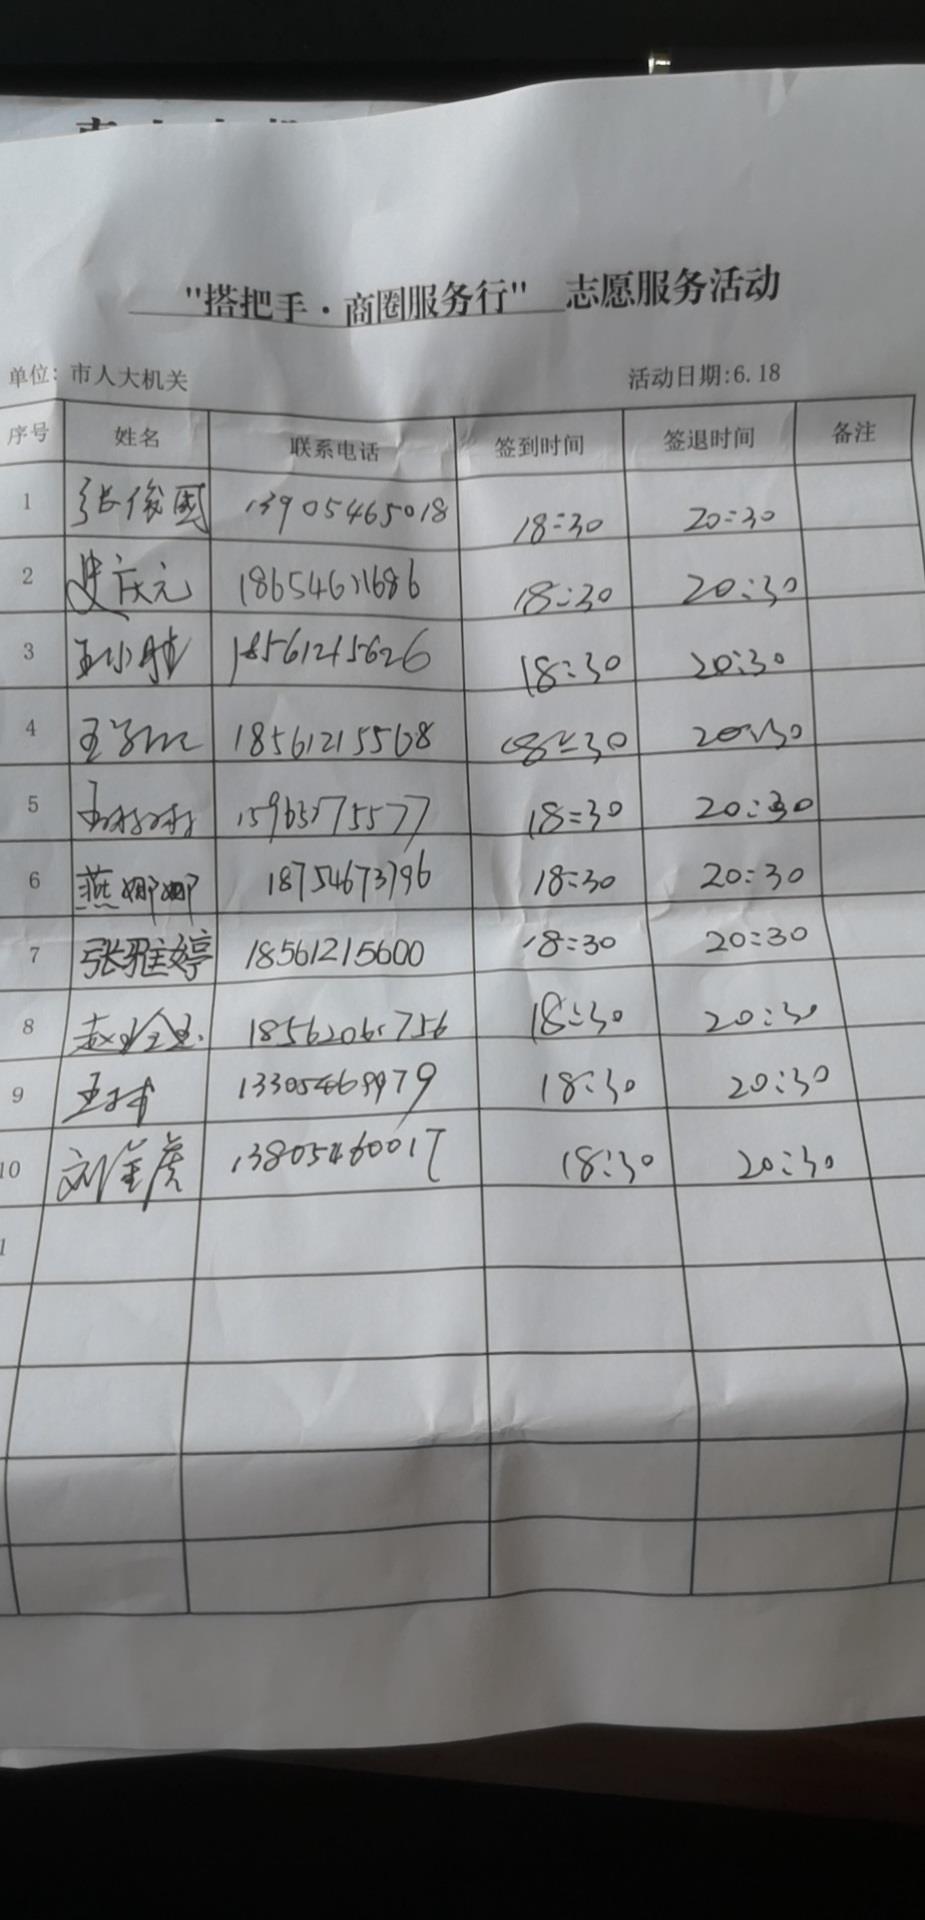 "搭把手·商圈服务行" 志愿服务活动
单位：市人大机关 活动日期:6.18
序号 姓名 联系电话 签到时间 签退时间 备注
1 张俊国 13905465018 18:30 20:30
2 史庆元 18:30 20:30
3 18561215626 18:30 20:30
4 18561215568 18:30 20:30
5 18:30 20:30
6 燕娜娜 18754673796 18:30 20:30
7 张雅婷 18561215600 18:30 20:30
8 18:30 20:30
9 13305469979 18:30 20:30
10 18:30 20:30